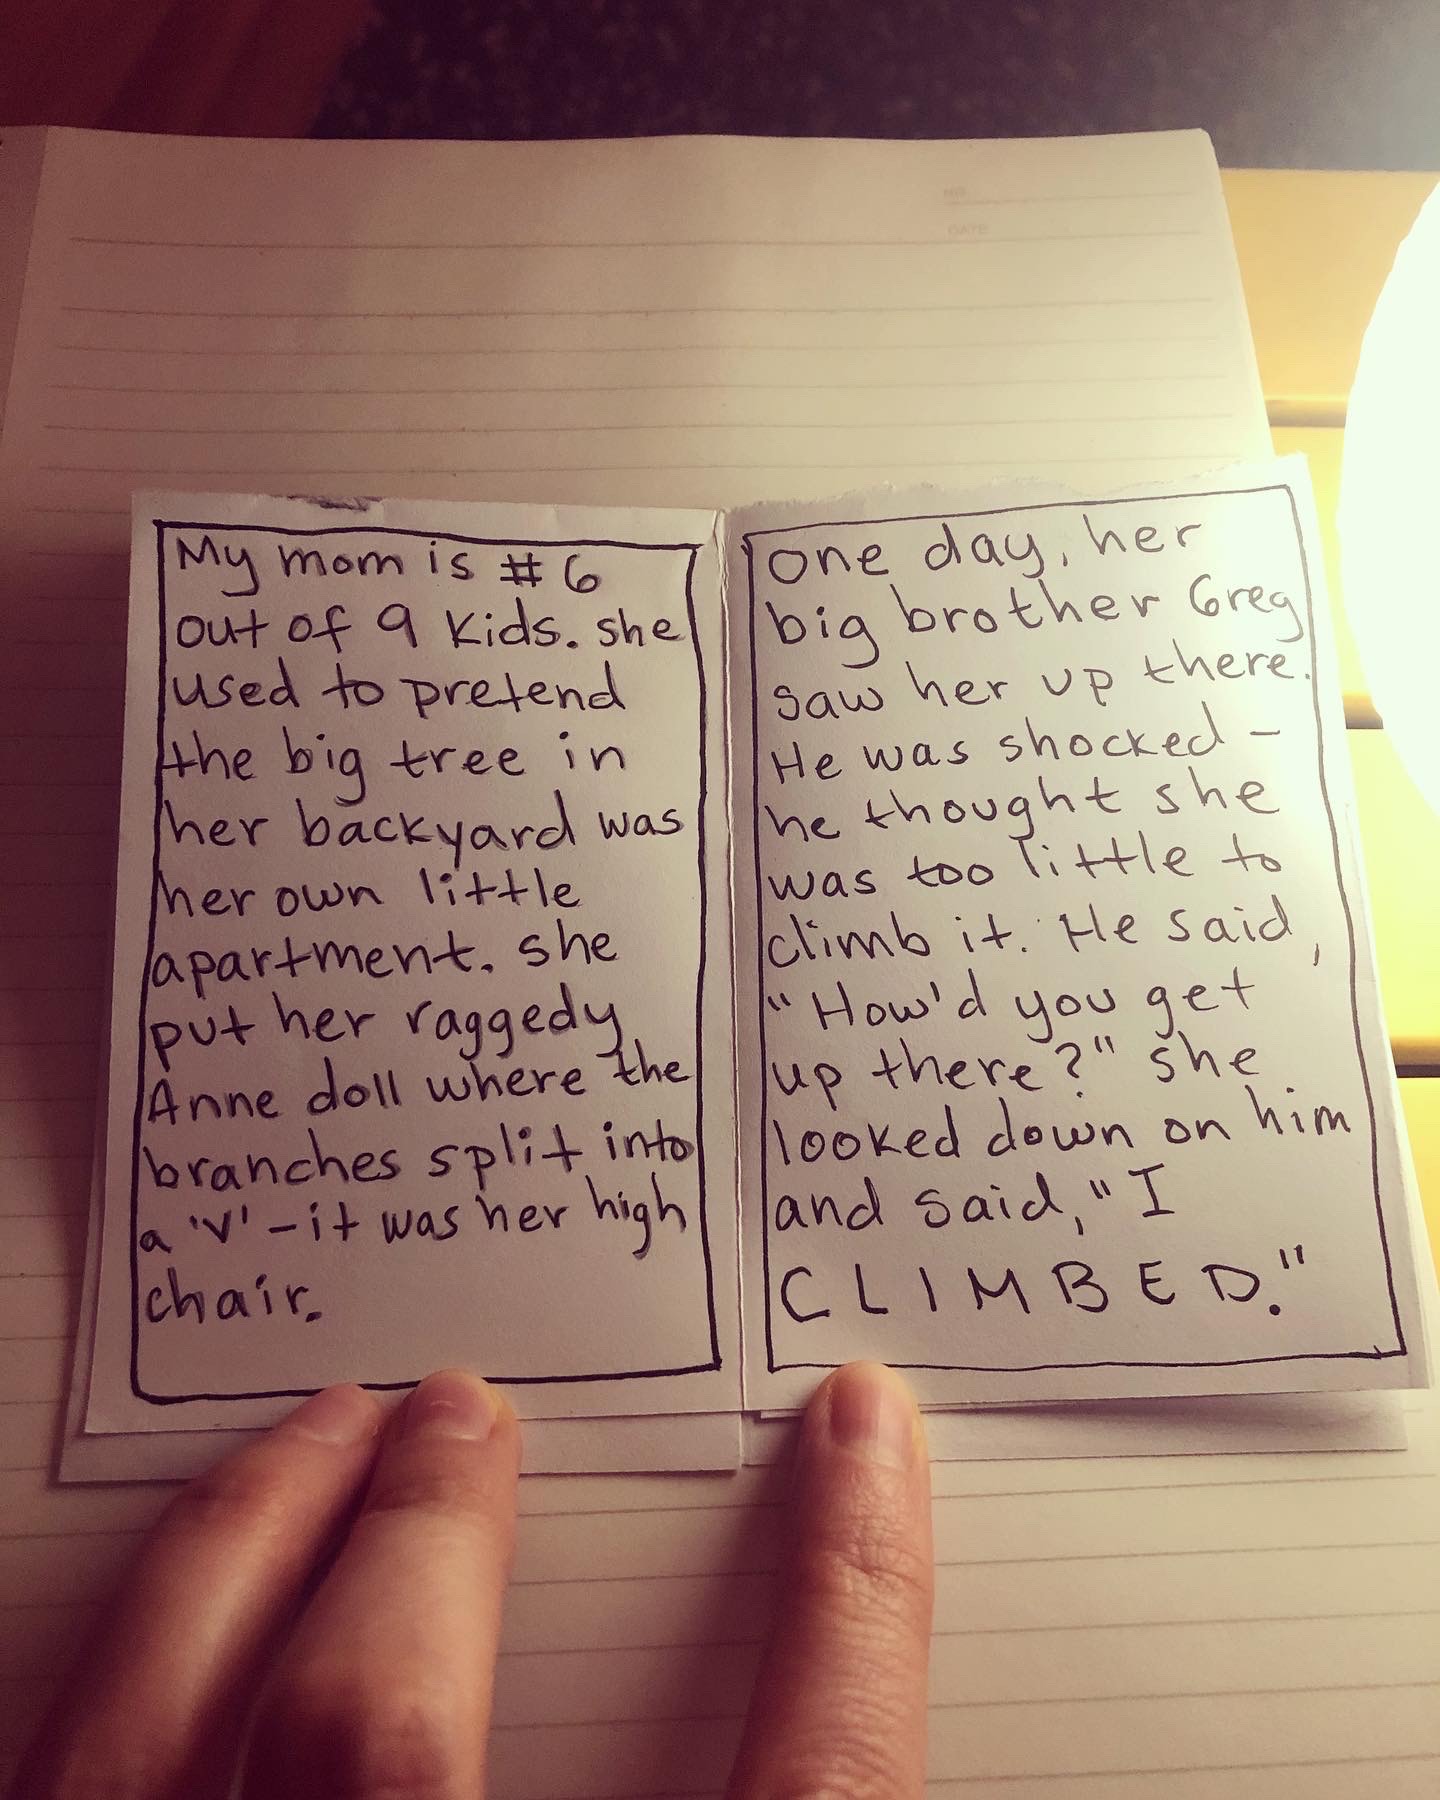 NO.
DATE
My mom is #6
out of 9 kids. she
used to pretend
the big tree in
her backyard was
her own little
apartment. she
put her raggedy
Anne doll where the
branches split into
a 'V' - it was her high
chair.
one day, her
big brother Greg
saw her up there.
He was shocked -
he thought she
was too little to
climb it. He said,
"How'd you get
up there?" she
looked down on him
and said, "I
CLIMBED."